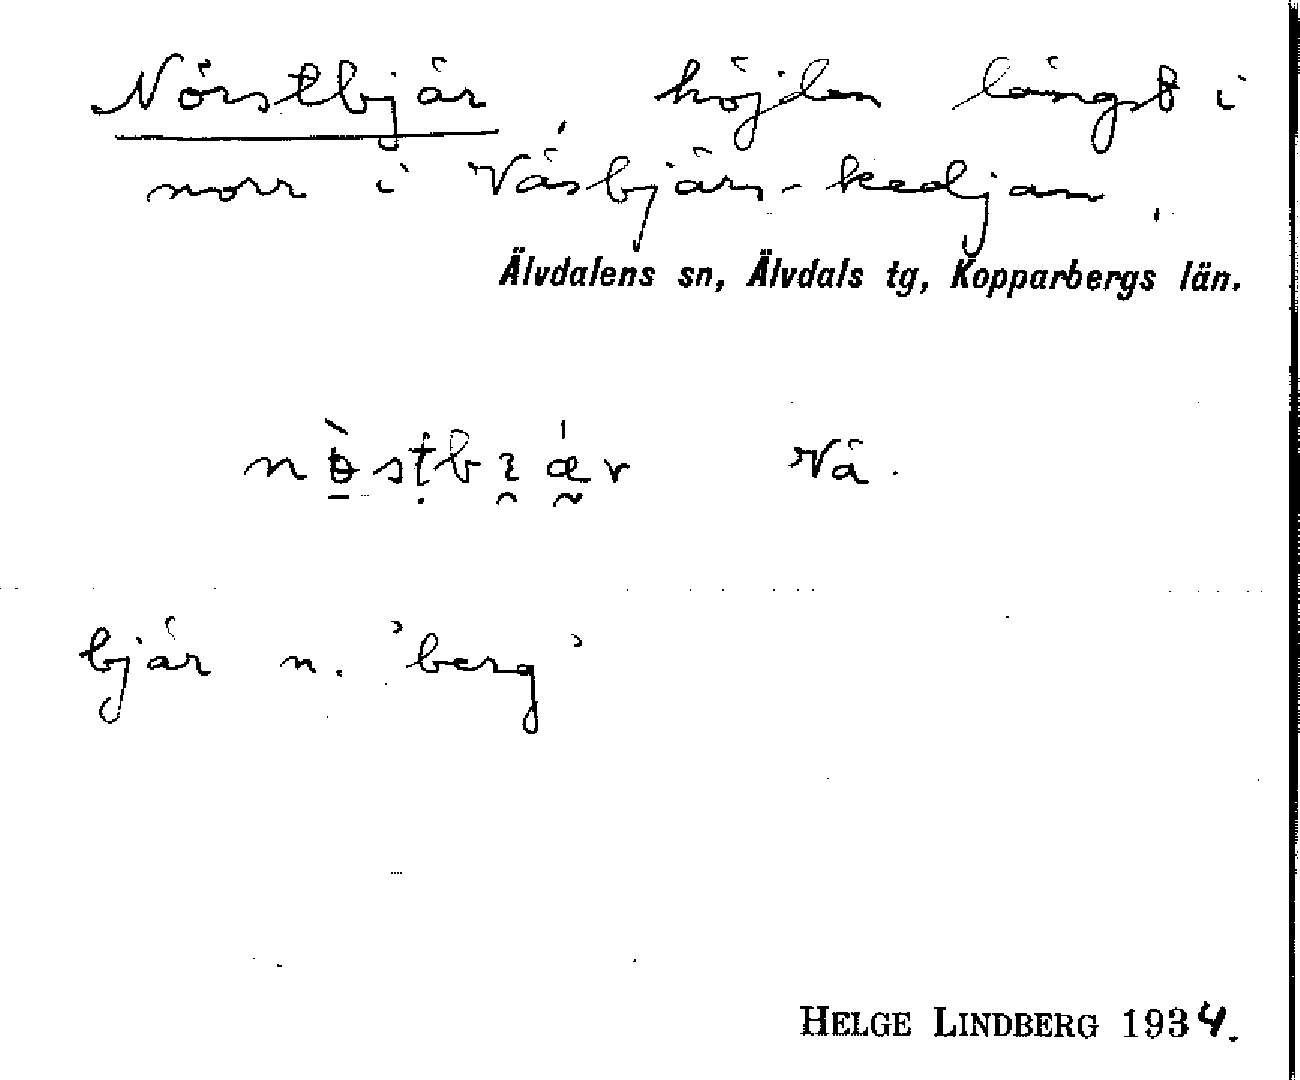 Nörstbjär, höjden längst i
norr i Väsbjärs-kedjan,
Älvdalens sn, Älvdals tg, Kopparbergs län.
Vä.
bjär n. 'berg'
HELGE LINDBERG 1934.